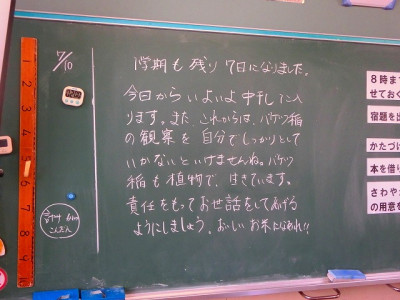 7/10
1学期も残り7日になりました。
今日からいよいよ中干しに入
ります。また、これからは、バケツ稲
の観察を自分でしっかりとして
いかないといけませんね。バケツ
稲も植物で、生きています。
責任をもってお世話をしてあげる
ようにしましょう。おいしいお米になあれ!!
こんだん
1
2
3
4
5
6
7
8
9
10
8時まで
せておく
宿題を出
かたづけ
本を借り
さわやか
の用意を